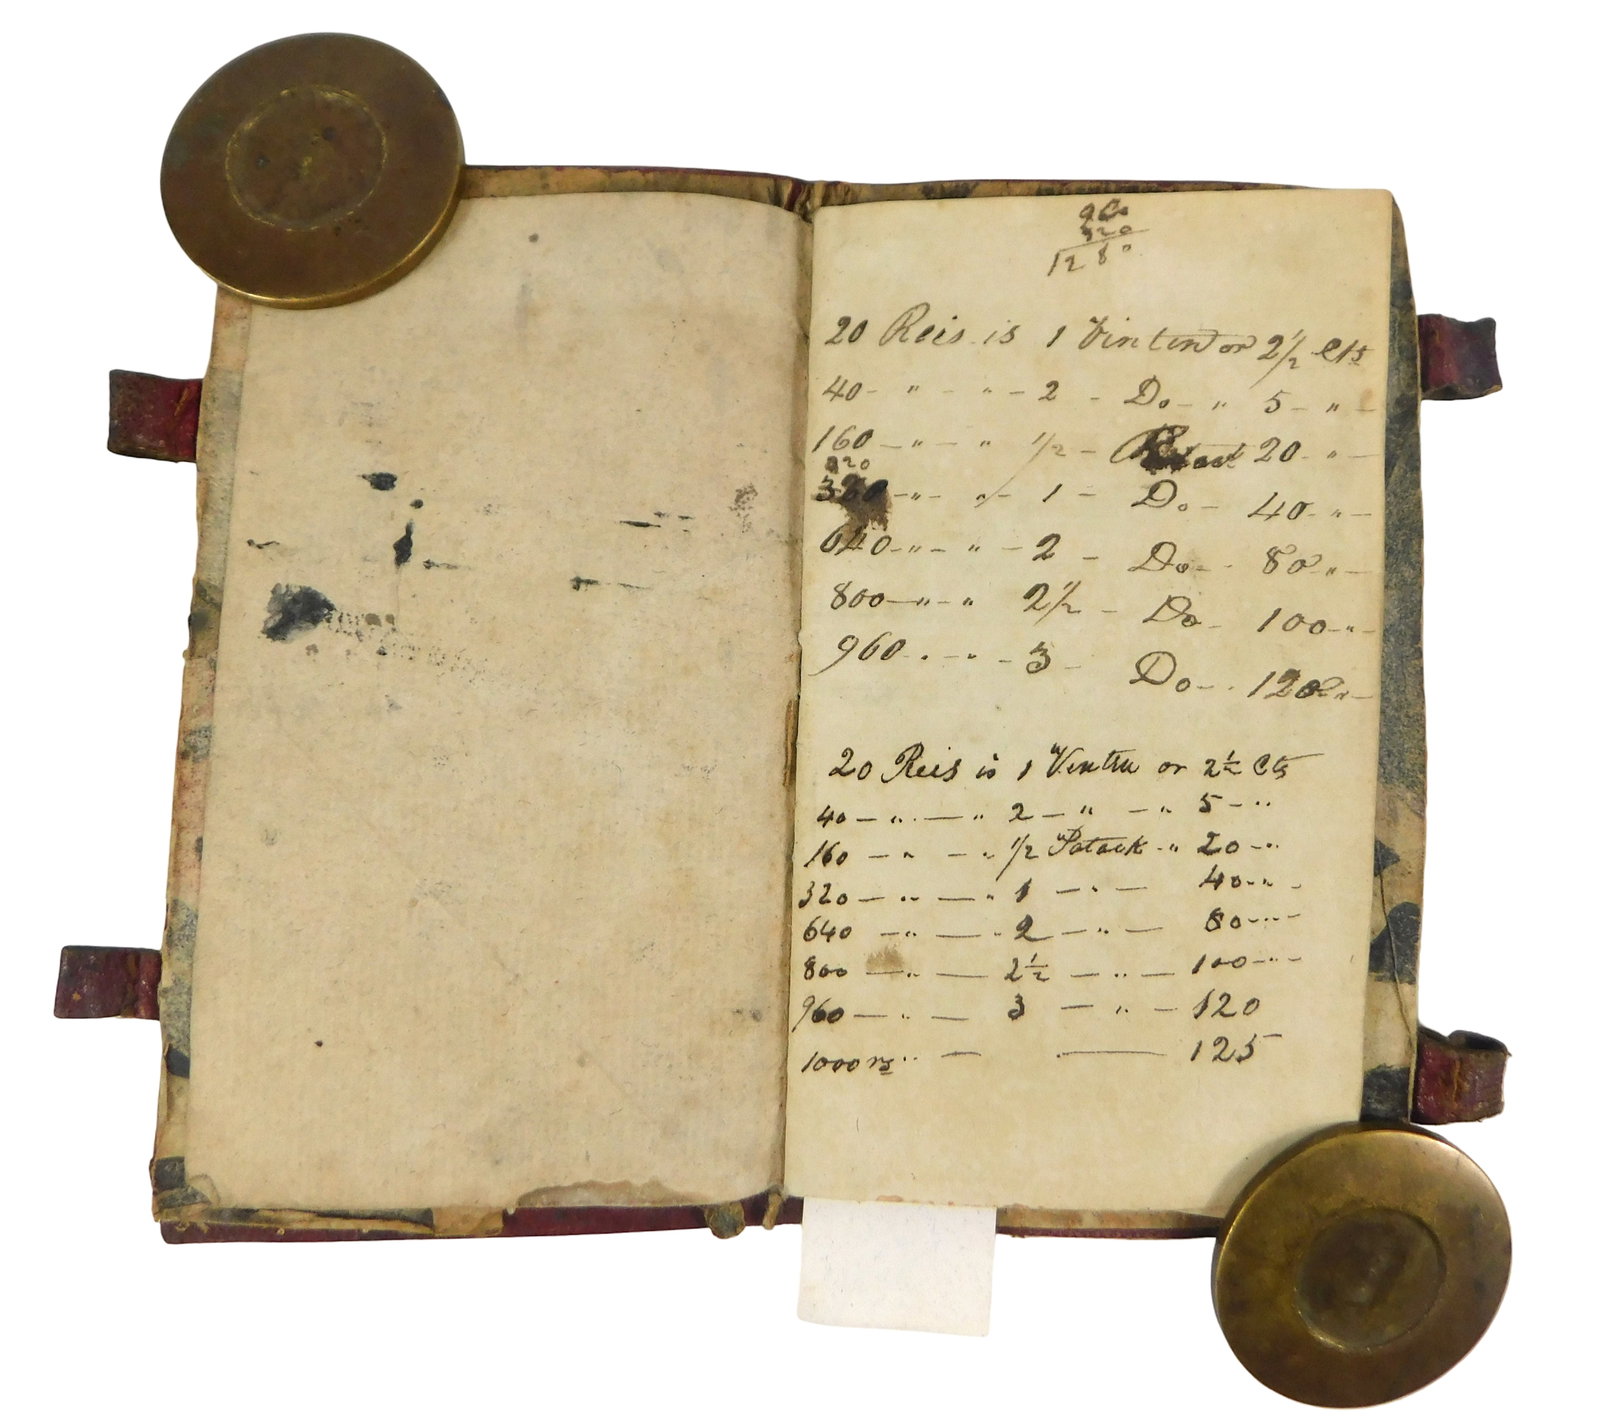 960
320
1280
20 Reis is 1 Vinten or 2 1/2 Cts
40 - " - " - 2 - Do - " 5 - " -
160 - " - " 1/2 - Patack 20 - " -
320
" - " - 1 - Do - 40 - " -
640 - " - " - 2 - Do - - 80 - " -
800 - " - " 2 1/2 - Do - 100 - " -
960 - . - . - 3 - Do - . 120 " -
20 Reis is 1 "Vinten or 2 1/2 Cts
40 - " . - " 2 - " - " 5 - "
160 - " - " 1/2 "Patack - " 20 - "
320 - " - " 1 - " - 40 - " -
640 - " - " 2 - " - 80 - " -
800 - " - 2 1/2 - " - 100 - " -
960 - " - 3 - " - 120
1000 rs " - . - 125